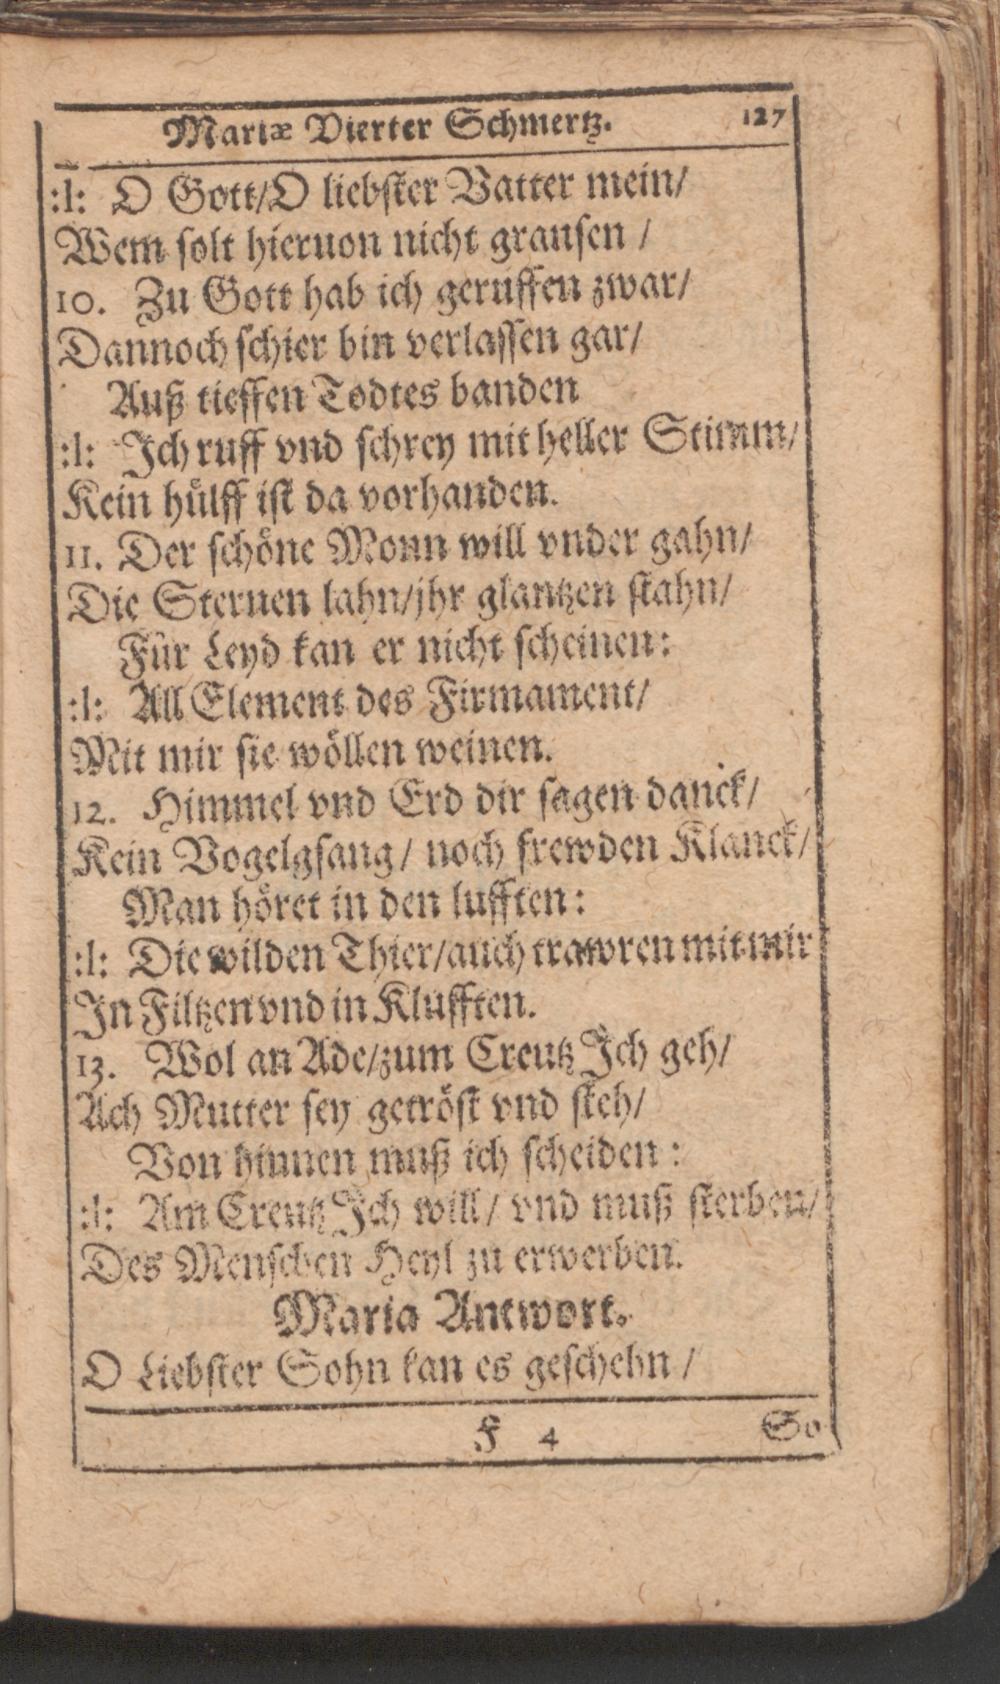 Mariæ Vierter Schmertz. 127
:l: O Gott/O liebster Vatter mein/
Wem solt hieruon nicht grausen /
10. Zu Gott hab ich geruffen zwar/
Dannoch schier bin verlassen gar/
Auß tieffen Todtes banden
:l: Ich ruff vnd schrey mit heller Stimm/
Kein hülff ist da vorhanden.
11. Der schöne Monn will vnder gahn/
Die Sternen lahn/jhr glantzen stahn/
Für Leyd kan er nicht scheinen:
:l: All Element des Firmament/
Mit mir sie wöllen weinen.
12. Himmel vnd Erd dir sagen danck/
Kein Vogelgsang/ noch frewden Klanck/
Man höret in den lufften:
:l: Die wilden Thier/auch trawren mit mir
In Filtzen vnd in Klufften.
13. Wol an Ade/zum Creutz Ich geh/
Ach Mutter sey getröst vnd steh/
Von hinnen muß ich scheiden:
:l: Am Creutz Ich will/ vnd muß sterben/
Des Menschen Heyl zu erwerben.
Maria Antwort.
O Liebster Sohn kan es geschehn /
F 4 So